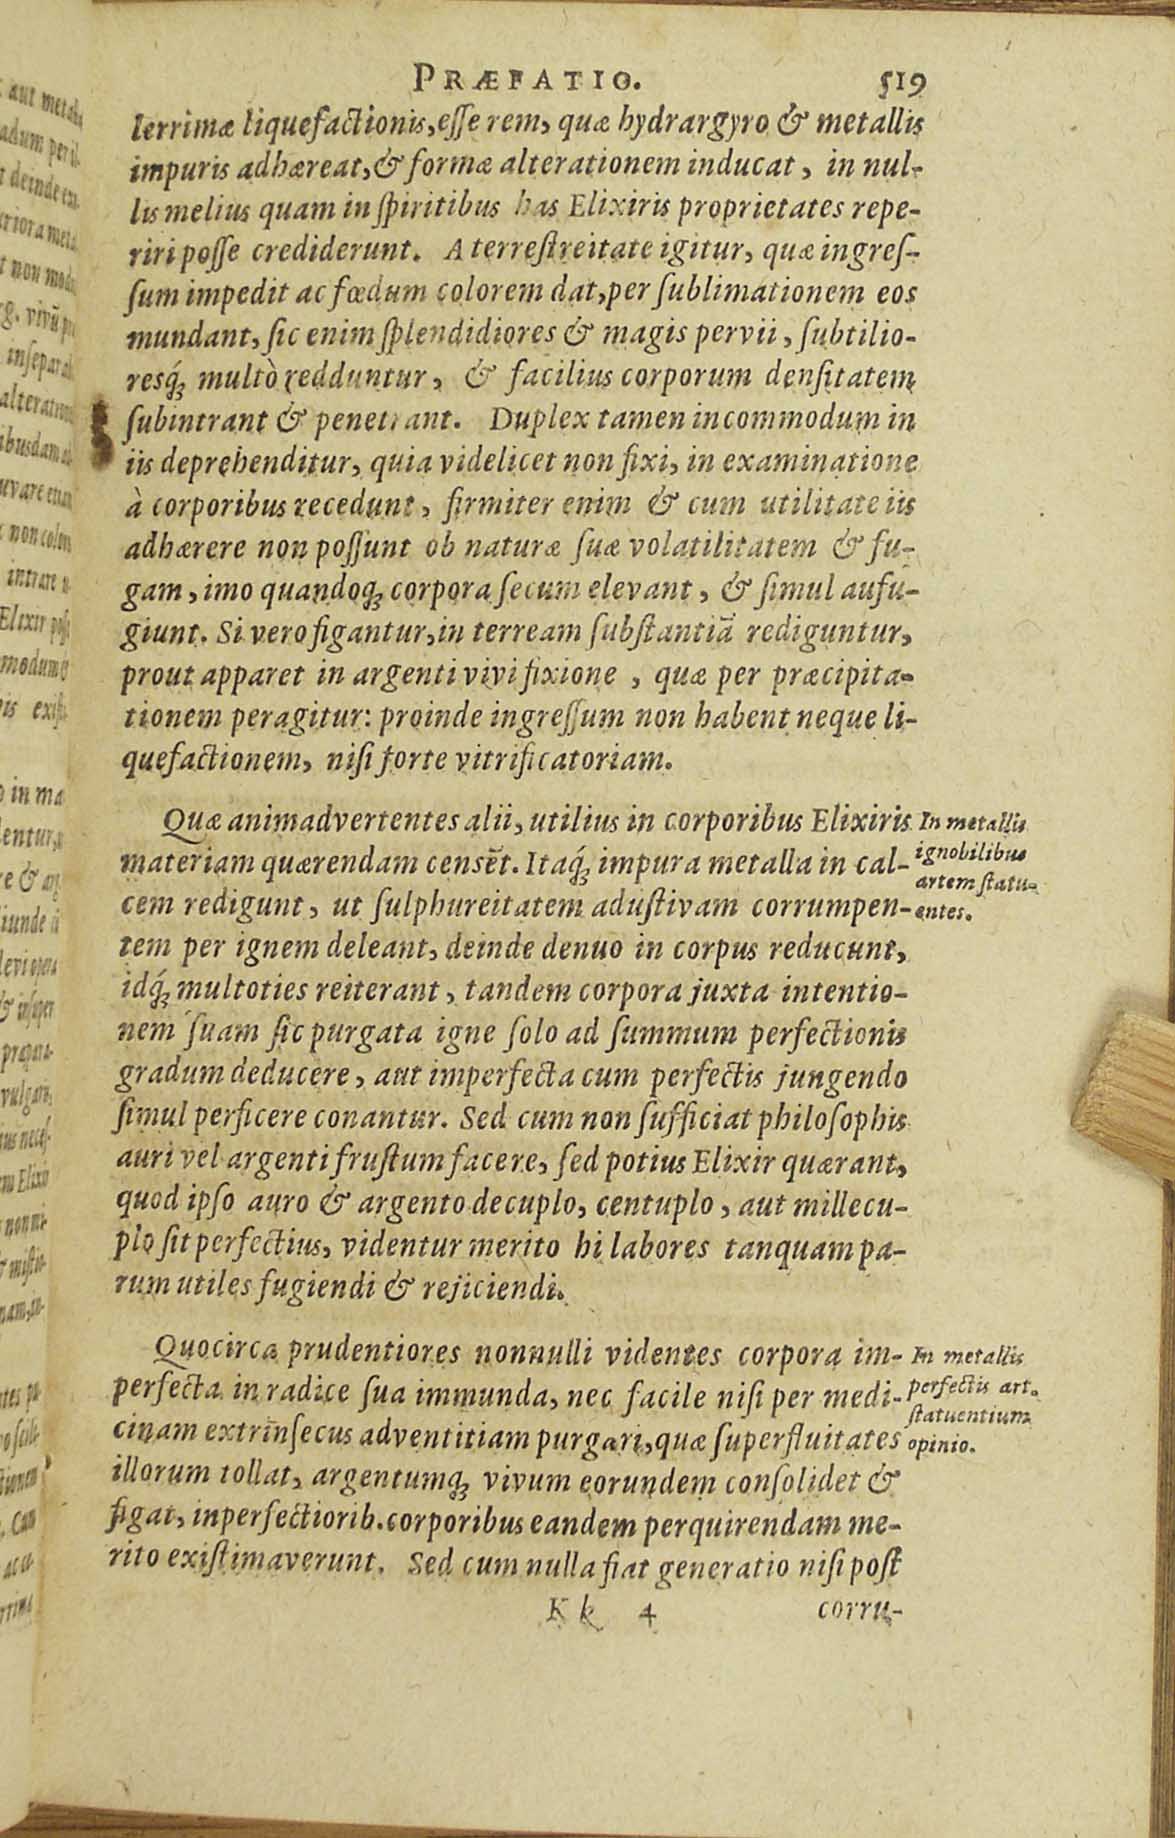 PRÆFATIO. 519
lerrimæ liquefactionis, esse rem, quæ hydrargyro & metallis
impuris adhæreat, & formæ alterationem inducat, in nul-
lis melius quam in spiritibus has Elixiris proprietates repe-
riri posse crediderunt. A terrestreitate igitur, quæ ingres-
sum impedit ac fœdum colorem dat, per sublimationem eos
mundant, sic enim splendidiores & magis pervii, subtilio-
resq́; multò redduntur, & facilius corporum densitatem
subintrant & penetrant. Duplex tamen incommodum in
iis deprehenditur, quia videlicet non fixi, in examinatione
à corporibus recedunt, firmiter enim & cum utilitate iis
adhærere non possunt ob naturæ suæ volatilitatem & fu-
gam, imo quandoq; corpora secum elevant, & simul aufu-
giunt. Si vero figantur, in terream substantiã rediguntur,
prout apparet in argenti vivi fixione, quæ per præcipita-
tionem peragitur: proinde ingressum non habent neque li-
quefactionem, nisi forte vitrificatoriam.
Quæ animadvertentes alii, utilius in corporibus Elixiris
materiam quærendam censẽt. Itaq́; impura metalla in cal-
cem redigunt, ut sulphureitatem adustivam corrumpen-
tem per ignem deleant, deinde denuo in corpus reducunt,
idq́; multoties reiterant, tandem corpora juxta intentio-
nem suam sic purgata igne solo ad summum perfectionis
gradum deducere, aut imperfecta cum perfectis jungendo
simul perficere conantur. Sed cum non sufficiat philosophis
auri vel argenti frustum facere, sed potius Elixir quærant,
quod ipso auro & argento decuplo, centuplo, aut millecu-
plo sit perfectius, videntur merito hi labores tanquam pa-
rum utiles fugiendi & rejiciendi.
In metallis
ignobilibus
artem statu-
entes.
Quocirca prudentiores nonnulli videntes corpora im-
perfecta in radice sua immunda, nec facile nisi per medi-
cinam extrinsecus adventitiam purgari, quæ superfluitates
illorum tollat, argentumq; vivum eorundem consolidet &
figat, inperfectiorib. corporibus eandem perquirendam me-
rito existimaverunt. Sed cum nulla fiat generatio nisi post
In metallis
perfectis art.
statuentium
opinio.
Kk 4 corru-